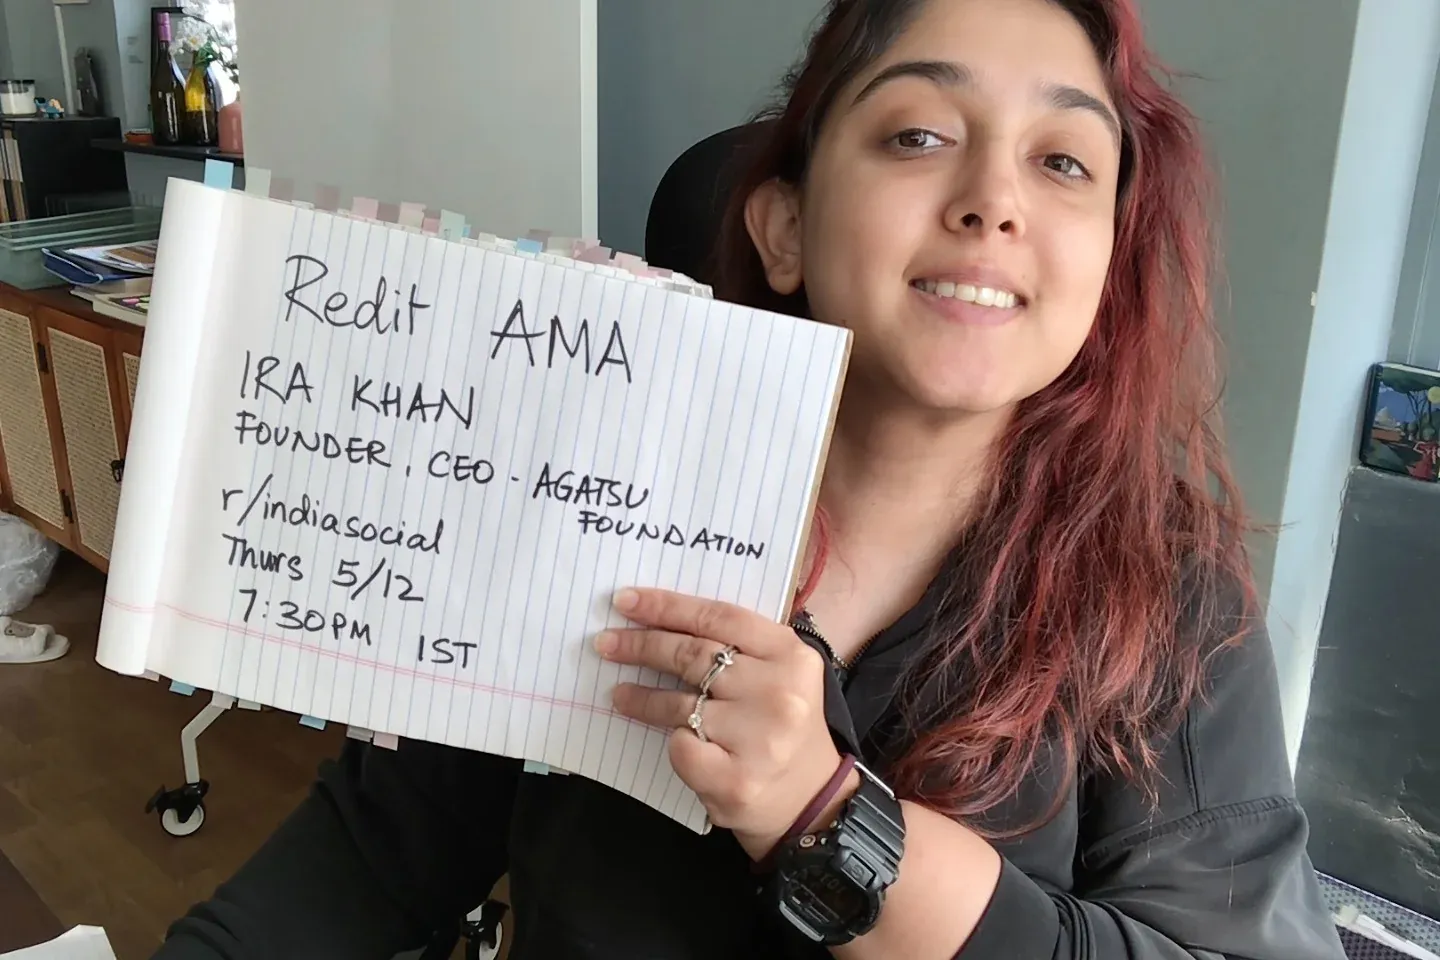 Redit AMA
IRA KHAN
FOUNDER, CEO - AGATSU
FOUNDATION
r/indiasocial
Thurs 5/12
7:30PM IST